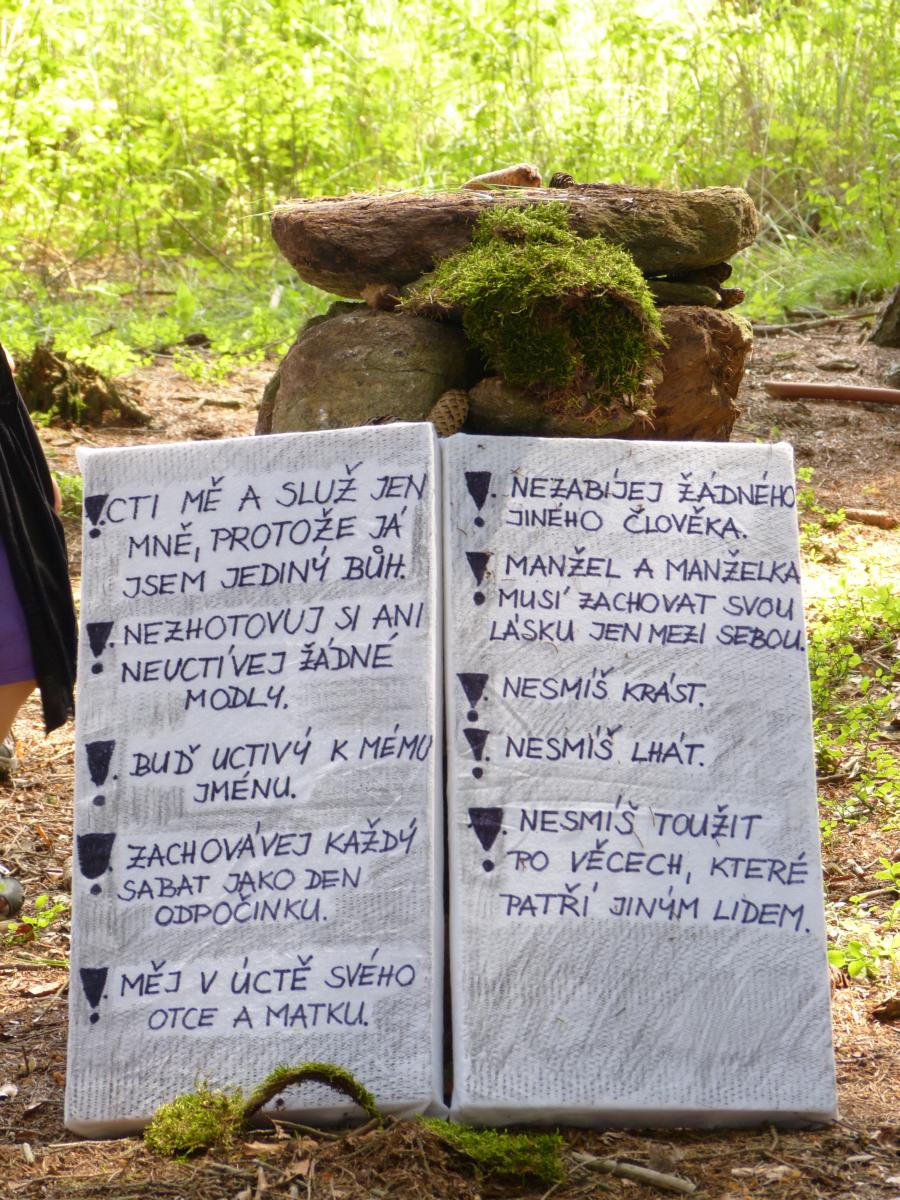 ! CTI MĚ A SLUŽ JEN
MNĚ, PROTOŽE JÁ
JSEM JEDINÝ BŮH.
! NEZHOTOVUJ SI ANI
NEUCTÍVEJ ŽÁDNÉ
MODLY.
! BUĎ UCTIVÝ K MÉMU
JMÉNU.
! ZACHOVÁVEJ KAŽDÝ
SABAT JAKO DEN
ODPOČINKU.
! MĚJ V ÚCTĚ SVÉHO
OTCE A MATKU.
! NEZABÍJEJ ŽÁDNÉHO
JINÉHO ČLOVĚKA.
! MANŽEL A MANŽELKA
MUSÍ ZACHOVAT SVOU
LÁSKU JEN MEZI SEBOU.
! NESMÍŠ KRÁST.
! NESMÍŠ LHÁT.
! NESMÍŠ TOUŽIT
PO VĚCECH, KTERÉ
PATŘÍ JINÝM LIDEM.